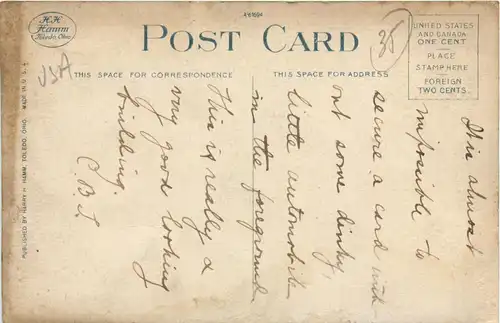 H.H.
Hamm
Toledo, Ohio.
AY1504
POST CARD
35
USA
THIS SPACE FOR CORRESPONDENCE
THIS SPACE FOR ADDRESS
UNITED STATES
AND CANADA
ONE CENT
PLACE
STAMP HERE
FOREIGN
TWO CENTS
It is almost
impossible to
secure a card with-
out some dinky,
little automobile
in the foreground
This is really a
very good looking
building.
C.B.L.
PUBLISHED BY HARRY H. HAMM, TOLEDO, OHIO.
MADE IN U.S.A.